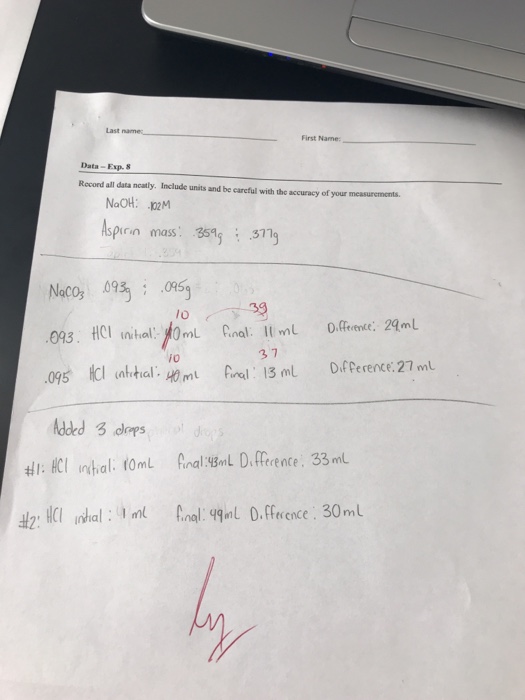 Last name: First Name:
Data – Exp. 8
Record all data neatly. Include units and be careful with the accuracy of your measurements.
NaOH: .102M
Aspirin mass: .359g ; .377g
NaCO3 .093g ; .095g
10 39
.093: HCl initial: 40mL final: 11 mL Difference: 29mL
10 37
.095 HCl intitial: 40 mL final: 13 mL Difference: 27 mL
Added 3 drops
#1: HCl initial: 10mL final: 43mL Difference: 33 mL
#2: HCl inital: 1 mL final: 49mL Difference: 30mL